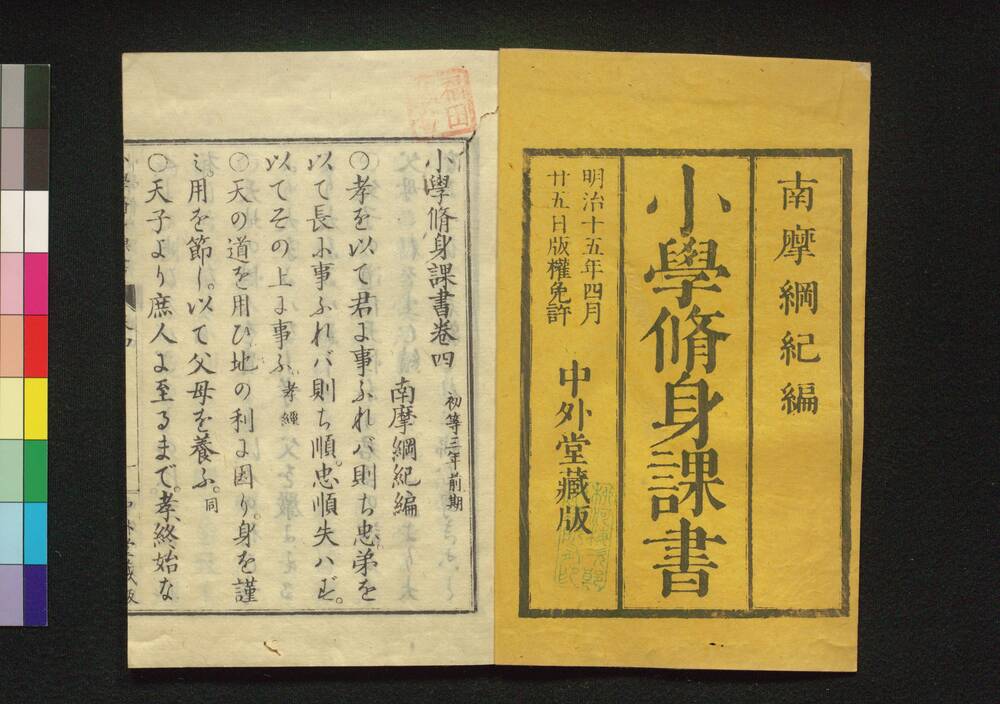 南摩綱紀編
小學脩身課書
明治十五年四月
廿五日版權免許
中外堂藏版
小學脩身課書卷四
初等三年前期
南摩綱紀編
〇孝を以て君に事ふれバ則ち忠弟を
以て長に事ふれバ則ち順。忠順失ハず。
以てその上に事ふ 孝經
〇天の道を用ひ地の利に因り。身を謹
ミ。用を節し。以て父母を養ふ。同
〇天子より庶人に至るまで。孝終始な